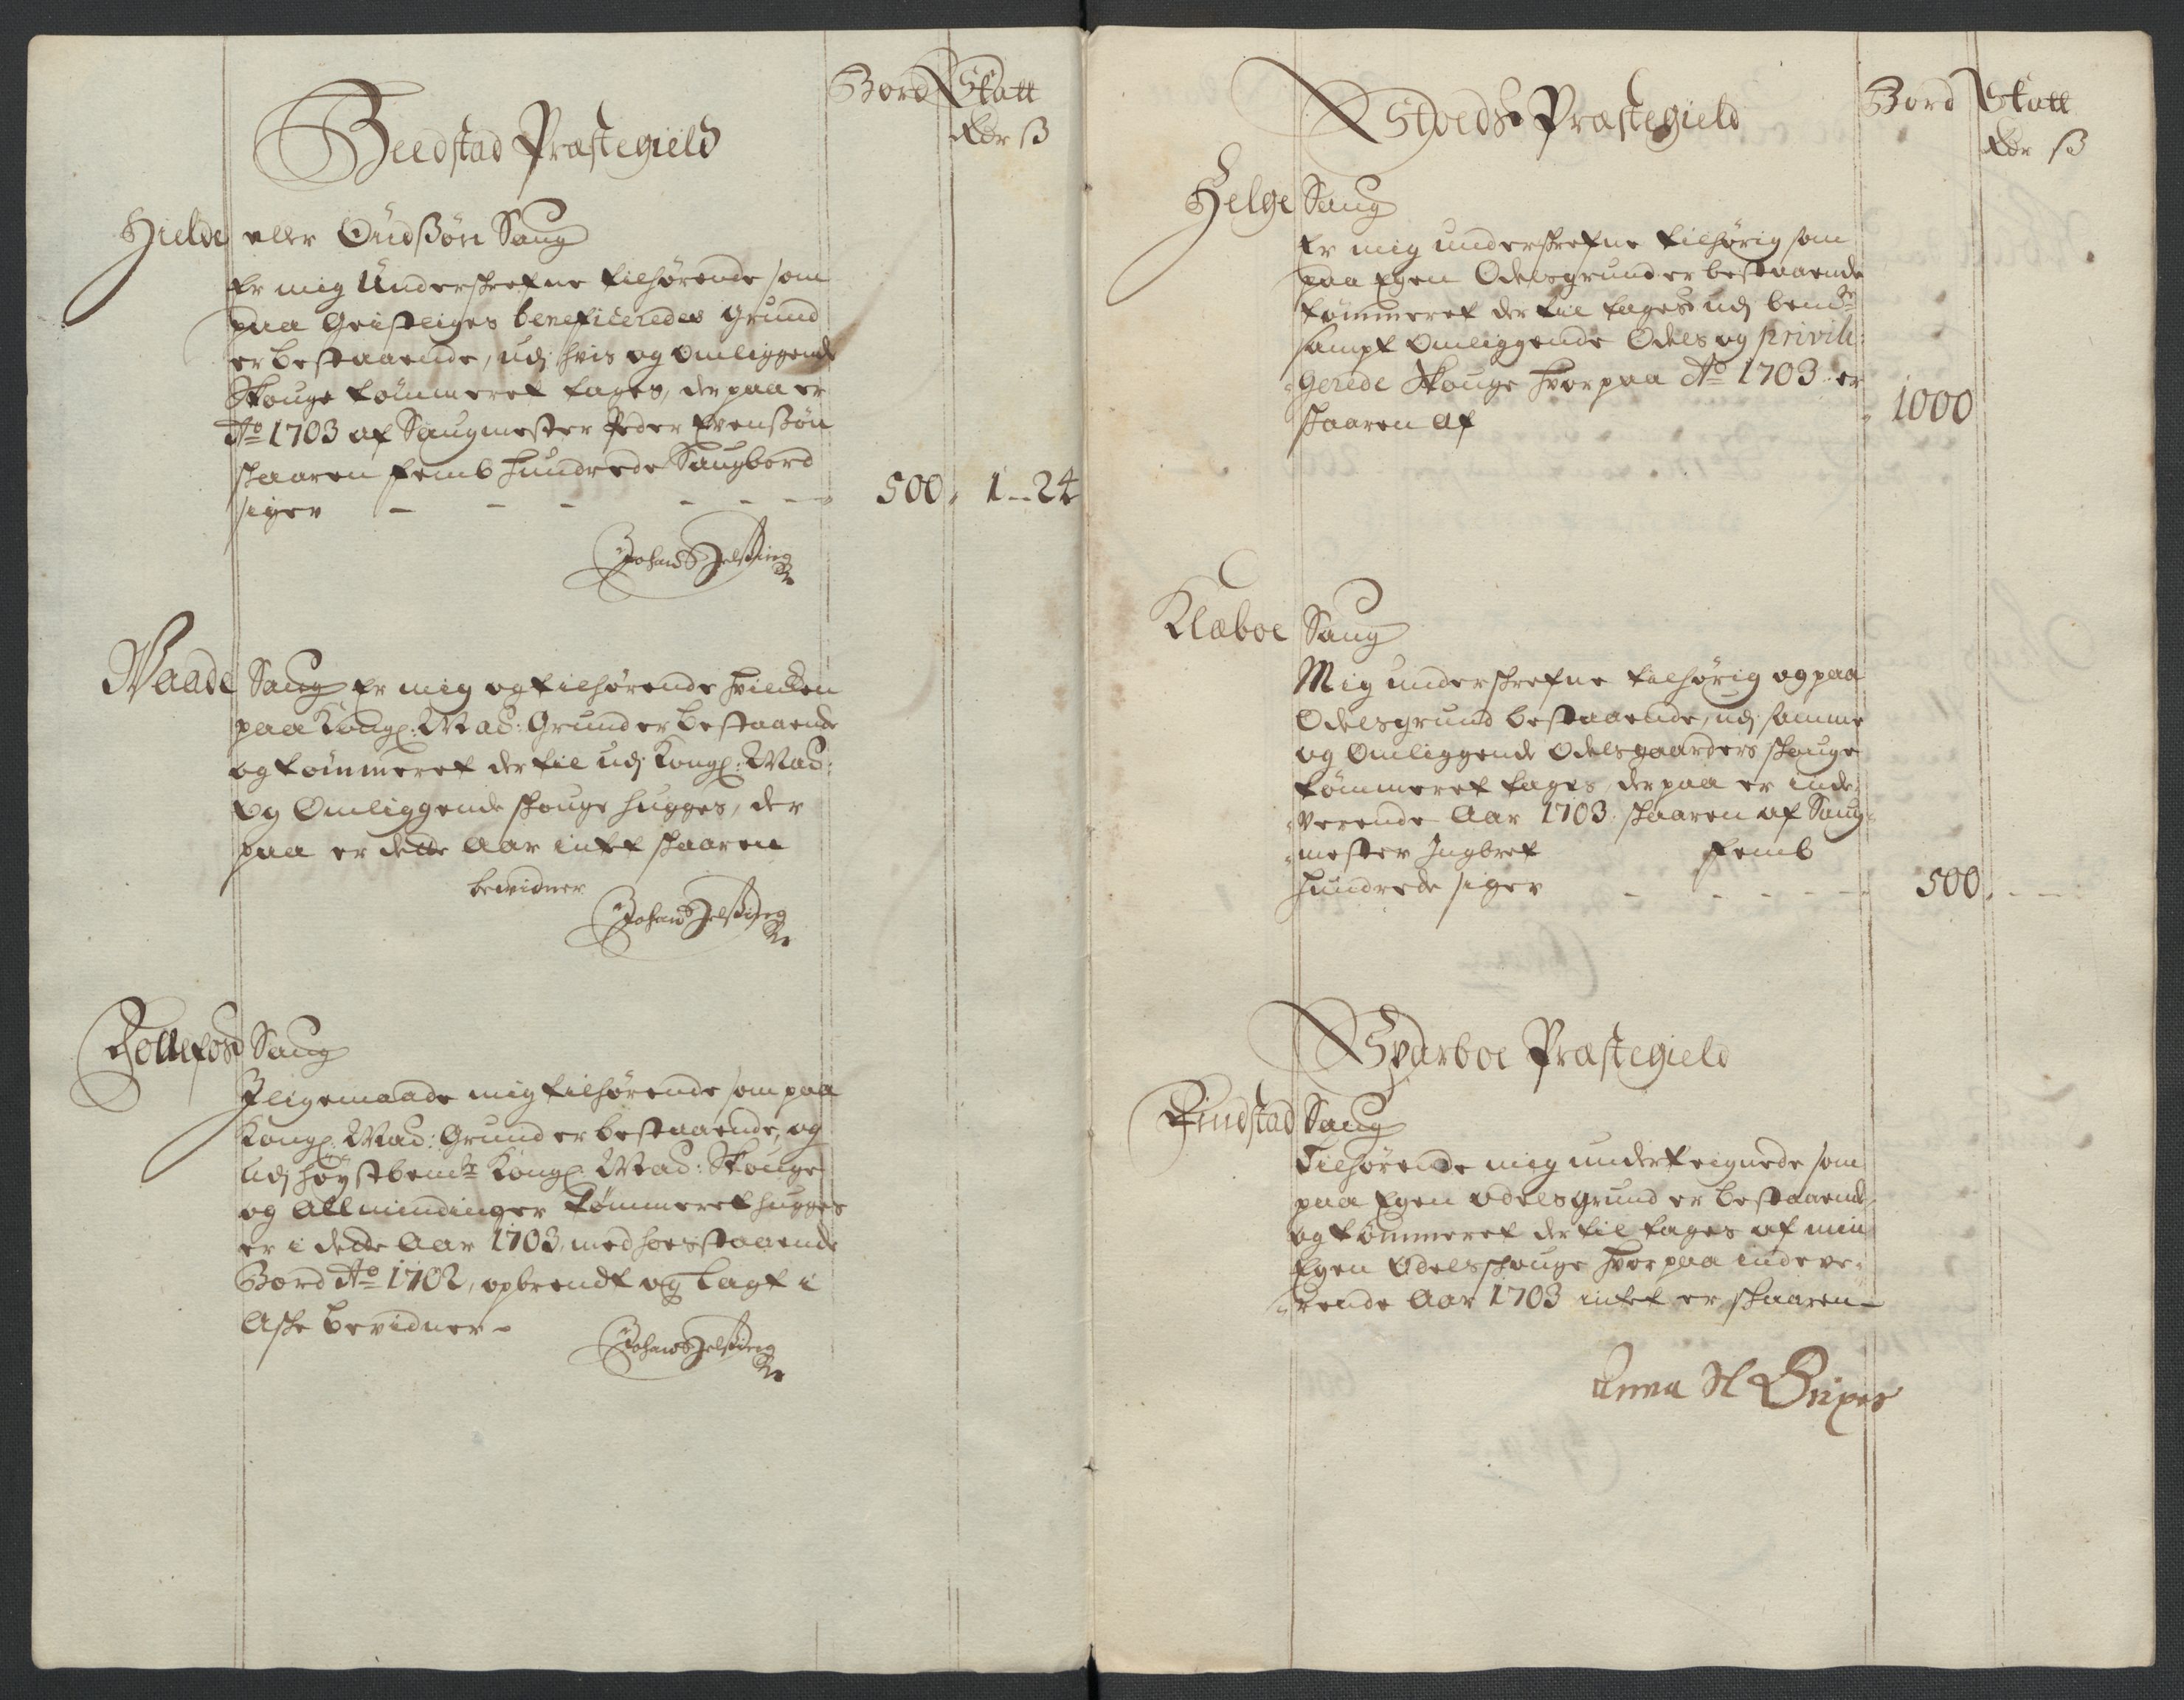 Bord Skatt
Rdr ß
Beedstad Præstegield
Hielde eller Oudßøn Saug
Er mig Underskrefne tilhørende som
paa Geistliges beneficeredes grund
er bestaaende, udj hvis og omliggende
Skouge tømmeret tages, der paa er
Ao 1703 af Saugmester Peder Evenßøn
skaaren femb hundrede Saugbord
siger - - - - - - 500, 1 - 24
Waade Saug Er mig og tilhørende hvilcken
paa Kongl: May: Grund er bestaaende
og tømmeret der til udj Kongl: May:
og Omliggende skouge hugges, der
paa er dette Aar intet skaaren
bevidner
Follefos Saug
Jligemaade mig tilhørende som paa
Kongl: May: Grund er bestaaende, og
udj høystbemte Kongl: May: Skouge
og Allmindinger tømmeret hugges
er i dette Aar 1703, med hosstaaende
Bord Ao 1702, opbrendt og lagt i
Aske bevidner -
Bord Skatt
Rdr ß
Stoeds Præstegield
Helge Saug
Er mig underskrefne tilhørig som
paa Egen Odelsgrund er bestaaende
tømmeret der til tages udj bemte
sampt omliggende Odels og privili-
gerede Skouge hvor paa Ao 1703 er
skaaren af 1000
Klæboe Saug
Mig underskrefne tilhørig og paa
Odelsgrund bestaaende, udj samme
og Omliggende Odelsgaarders skouge
tømmeret tages, der paa er inde-
verende Aar 1703 skaaren af Saug-
mester Ingbret femb
hundrede siger - - - - - 500
Sparboe Præstegield
Findstad Saug
Tilhørende mig undertegnede som
paa Egen odelsgrund er bestaaende,
og tømmeret der til tages af min
Egen Odelsskouge hvor paa indeve-
rende Aar 1703 intet er skaaren -
Anna Sl